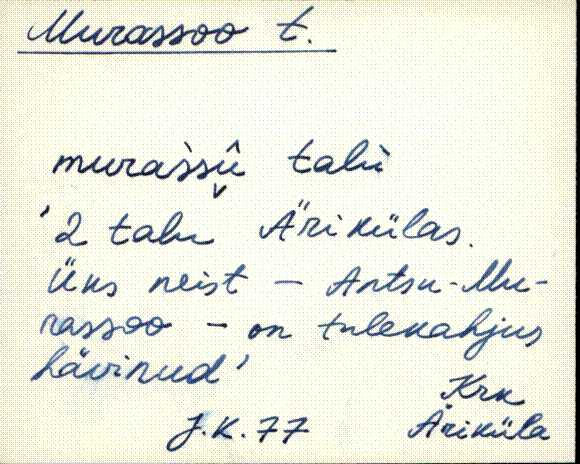 Murassoo t.
muraśsû talù
'2 talu Ärikülas.
Üks neist - Antsu-Mu-
rassoo - on tulekahjus
hävinud'
Krk
J.K. 77 Äriküla